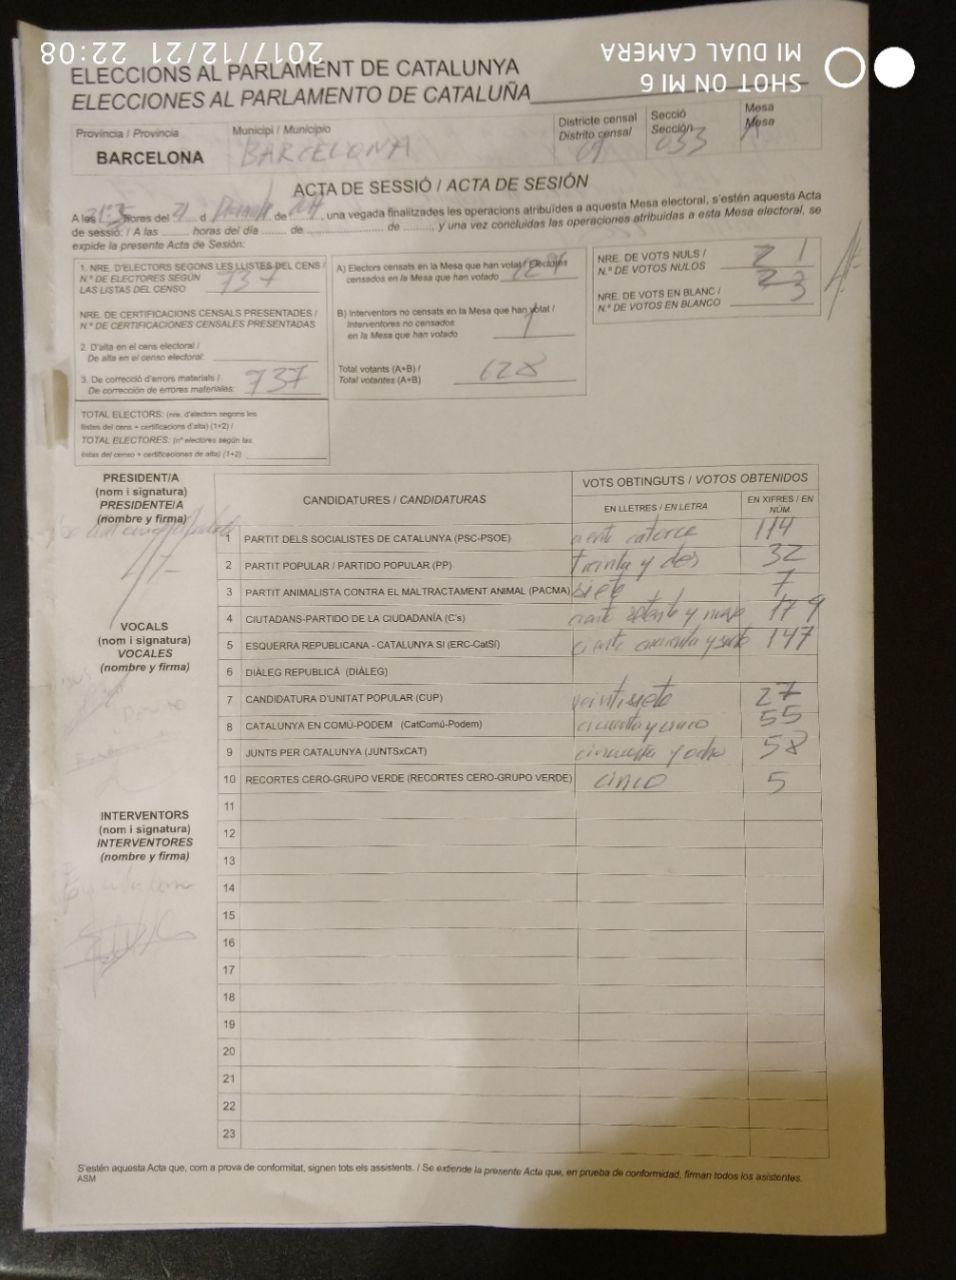 2017/12/21 22:08
SHOT ON MI 6
MI DUAL CAMERA
ELECCIONS AL PARLAMENT DE CATALUNYA
ELECCIONES AL PARLAMENTO DE CATALUÑA
Provincia / Provincia
BARCELONA
Municipi / Municipio
BARCELONA
Districte censal
Distrito censal
09
Secció
Sección
033
Mesa
Mesa
A
ACTA DE SESSIÓ / ACTA DE SESIÓN
A les hores del 21 d de , una vegada finalitzades les operacions atribuïdes a aquesta Mesa electoral, s'estén aquesta Acta
de sessió: / A las ........ horas del día ....... de ........................ de ........, y una vez concluidas las operaciones atribuidas a esta Mesa electoral, se
expide la presente Acta de Sesión:
1. NRE. D'ELECTORS SEGONS LES LLISTES DEL CENS /
N.º DE ELECTORES SEGÚN
LAS LISTAS DEL CENSO 737
NRE. DE CERTIFICACIONS CENSALS PRESENTADES /
N.º DE CERTIFICACIONES CENSALES PRESENTADAS
2. D'alta en el cens electoral /
De alta en el censo electoral:
3. De correcció d'errors materials /
De corrección de errores materiales: 737
TOTAL ELECTORS: (nre. d'electors segons les
llistes del cens + certificacions d'alta) (1+2) /
TOTAL ELECTORES: (nº electores según las
listas del censo + certificaciones de alta) (1+2)
A) Electors censats en la Mesa que han votat / Electores
censados en la Mesa que han votado
B) Interventors no censats en la Mesa que han votat /
Interventores no censados
en la Mesa que han votado 1
Total votants (A+B) /
Total votantes (A+B) 628
NRE. DE VOTS NULS /
N.º DE VOTOS NULOS 21
NRE. DE VOTS EN BLANC /
N.º DE VOTOS EN BLANCO 23
PRESIDENT/A
(nom i signatura)
PRESIDENTE/A
(nombre y firma)
VOCALS
(nom i signatura)
VOCALES
(nombre y firma)
INTERVENTORS
(nom i signatura)
INTERVENTORES
(nombre y firma)
CANDIDATURES / CANDIDATURAS
VOTS OBTINGUTS / VOTOS OBTENIDOS
EN LLETRES / EN LETRA
EN XIFRES / EN NÚM.
1 PARTIT DELS SOCIALISTES DE CATALUNYA (PSC-PSOE) ciento catorce 114
2 PARTIT POPULAR / PARTIDO POPULAR (PP) treinta y dos 32
3 PARTIT ANIMALISTA CONTRA EL MALTRACTAMENT ANIMAL (PACMA) siete 7
4 CIUTADANS-PARTIDO DE LA CIUDADANÍA (C's) ciento setenta y nueve 179
5 ESQUERRA REPUBLICANA - CATALUNYA SI (ERC-CatSí) ciento cuarenta y siete 147
6 DIÀLEG REPUBLICÀ (DIÀLEG)
7 CANDIDATURA D'UNITAT POPULAR (CUP) veintisiete 27
8 CATALUNYA EN COMÚ-PODEM (CatComú-Podem) cincuenta y cinco 55
9 JUNTS PER CATALUNYA (JUNTSxCAT) cincuenta y ocho 58
10 RECORTES CERO-GRUPO VERDE (RECORTES CERO-GRUPO VERDE) cinco 5
11
12
13
14
15
16
17
18
19
20
21
22
23
S'estén aquesta Acta que, com a prova de conformitat, signen tots els assistents. / Se extiende la presente Acta que, en prueba de conformidad, firman todos los asistentes.
ASM